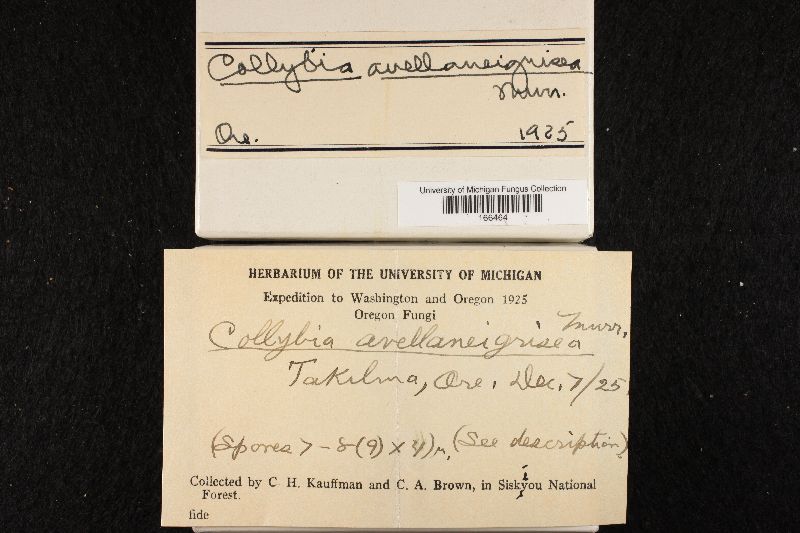 Collybia avellaneigrisea
Murr.
Ore. 1925
University of Michigan Fungus Collection
166464
HERBARIUM OF THE UNIVERSITY OF MICHIGAN
Expedition to Washington and Oregon 1925
Oregon Fungi
Collybia avellaneigrisea Murr.
Takilma, Ore. Dec. 7/25
(Spores 7-8(9) x 4)µ, (See description)
Collected by C. H. Kauffman and C. A. Brown, in Siskiyou National
Forest.
fide